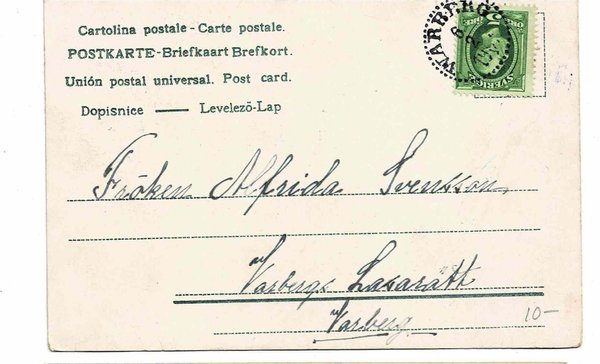 Cartolina postale - Carte postale.
POSTKARTE - Briefkaart Brefkort.
Unión postal universal. Post card.
Dopisnice — Levelező-Lap
WARBERG
SVERIGE
Fröken Alfrida Svensson,
Varbergs Lasarätt
Varberg
10-